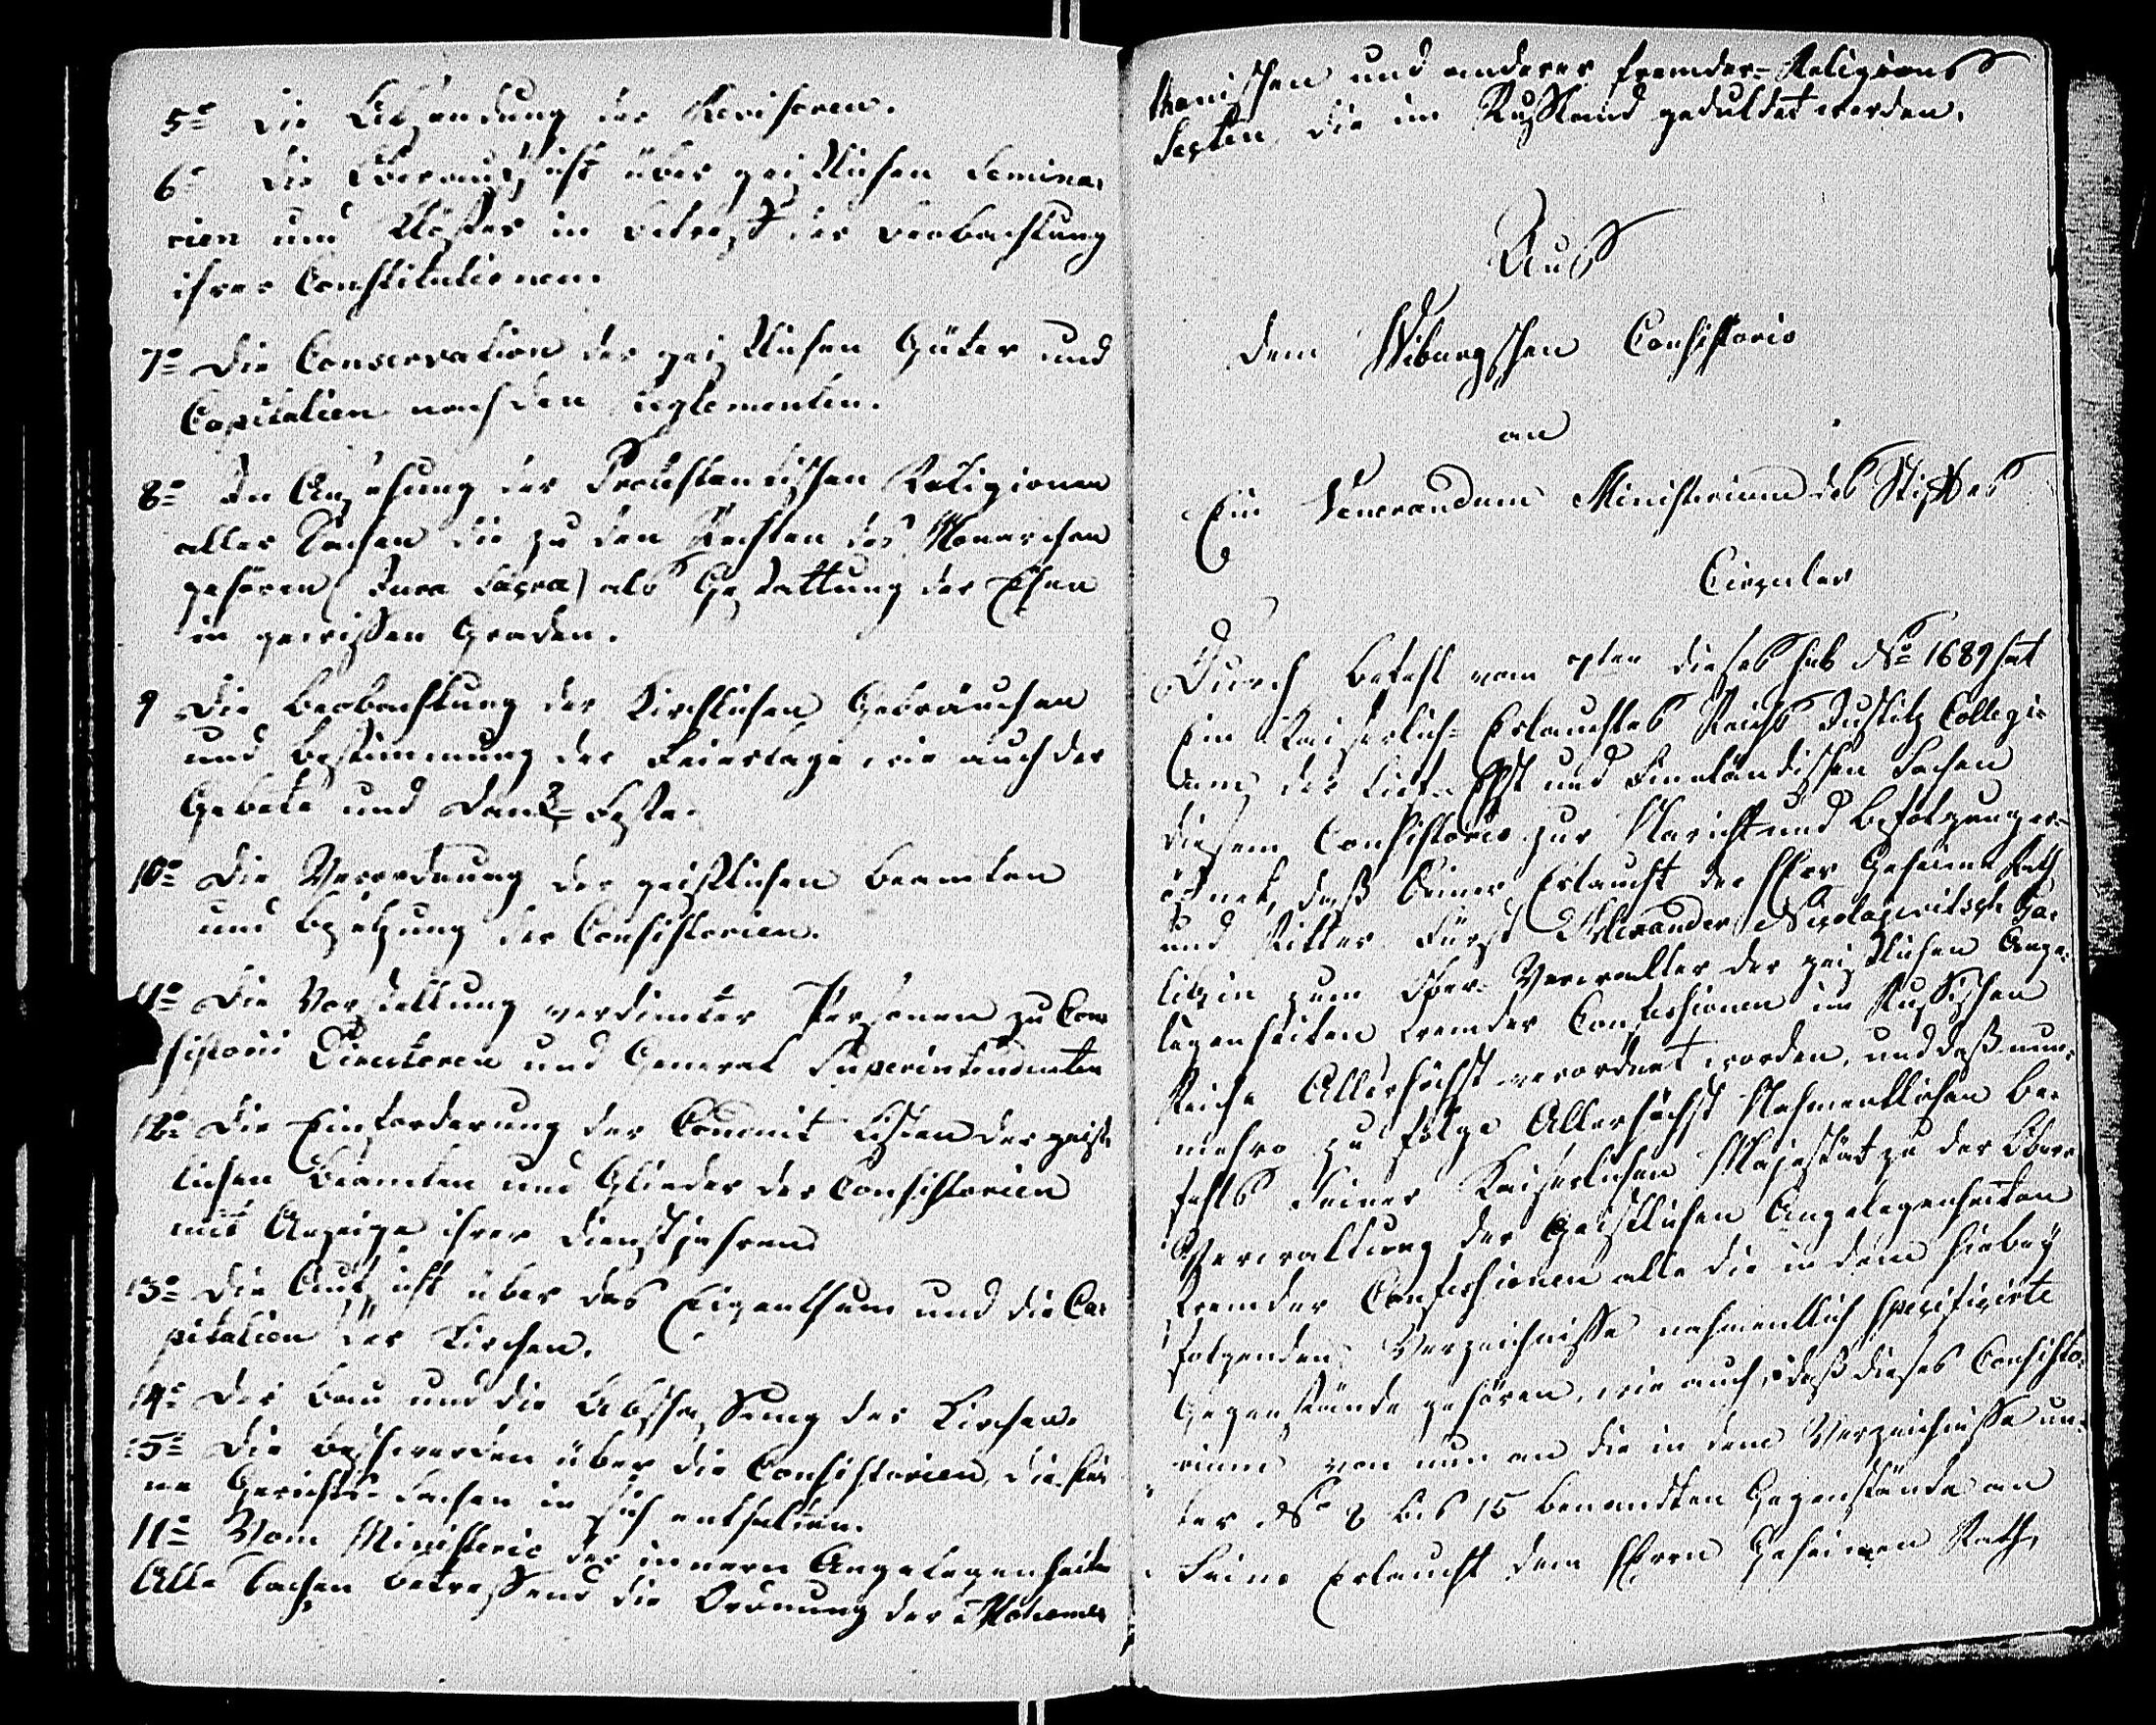 5o Die Absendung der Revisoren.
6o Die Oberaufsicht über geistlichen Semina-
rien und Klöster in Betreff der Beobachtung
ihrer Constitutionen.
7o Die Conservation der geistlichen Güter und
Capitalien nach den Reglementen.
8o In Ansehung der Protestantischen Religionen
aller Sachen die zu den Rechten des Monarchen
gehören (Jura Sacra) als Gestattung der Ehen
in gewissen Graden.
9 Die Beobachtung der Kirchlichen Gebräuchen
und Bestimmung der Feiertage wie auch der
Gebete und Dank-Feste.
10o Die Verordnung der geistlichen Beamten
und Besetzung der Consistorien.
11o Die Vorstellung verdienter Personen zu Con-
sistorii Directoren und General Superintendenten
12o Die Einforderung der Listen der geist-
lichen Beamten und Glieder der Consistorien
mit Anzeige ihrer Dienstjahren
13o Die Aufsicht über das Eigenthum und die Ca-
pitalien der Kirchen.
14o Der Bau und die Abschaffung der Kirchen.
15o Die Beschwerden über die Consistorien, die kei-
ne Gerichts-Sachen in sich enthalten.
11o Vom Ministerio der innern Angelegenheiten
Alle Sachen betreffend die Ordnung der Mohame-
thanischen und anderer fremder-Religions
Secten die im Russland geduldet werden.
Aus
dem Wiburgschen Consistorio
an
Ein Venerandum Ministerium des Stiftes
Circular
Durch Befehl vom ten dieses sub No 1689 hat
Ein Kaiserlich-Erlauchtes Reichs Justitz Collegi-
um der Lief- Ehst und Finnländischen Sachen
diesem Consistorio zur Nachricht und Befolgung er-
öfnet, daß Seiner Erlaucht der Herr Geheime Rath
und Ritter Fürst Alexander Nicolajewitsch Ga-
litzin zum Ober-Verwalter der geistlichen Ange-
legenheiten fremder Confessionen im Russischen
Reiche Allerhöchst verordnet worden, und daß nun-
mehro zu folge Allerhöchst Nahmentlichen Be-
fehls Seiner Kaiserlichen Majestät zu der Ober-
Verwaltung der Geistlichen Angelegenheiten
fremder Confessionen alle die in dem hiebey
folgenden Verzeichnisse nahmentlich specificirte
Gegenstände gehören, wie auch, daß dieses Consisto-
rium von nun an die in dem Verzeichnisse un-
ter No 8 bis 15 benandten Gegenstände an
Seine Erlaucht dem Herrn Geheimen Rath